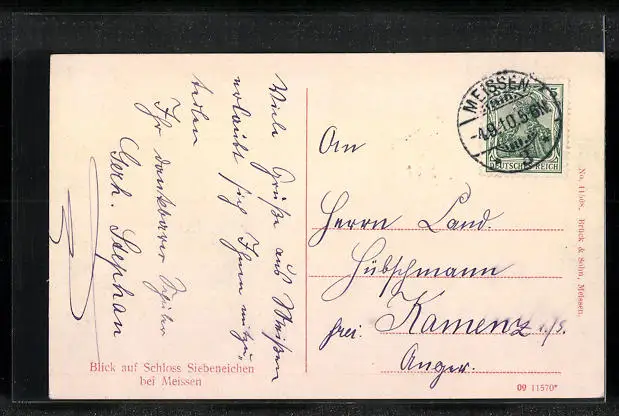 Viele Grüße aus Meißen
erlaubt sich Ihnen mitzu-
teilen
Ihr dankbarer Schüler
Gerh. Stephan
Blick auf Schloss Siebeneichen
bei Meissen
MEISSEN
-4.9.10.5-6N.
DEUTSCHES REICH
An
Herrn Cand.
Hübschmann
frei. Kamenz i/S.
Anger.
No. 11508. Brück & Sohn, Meissen.
09 11570*